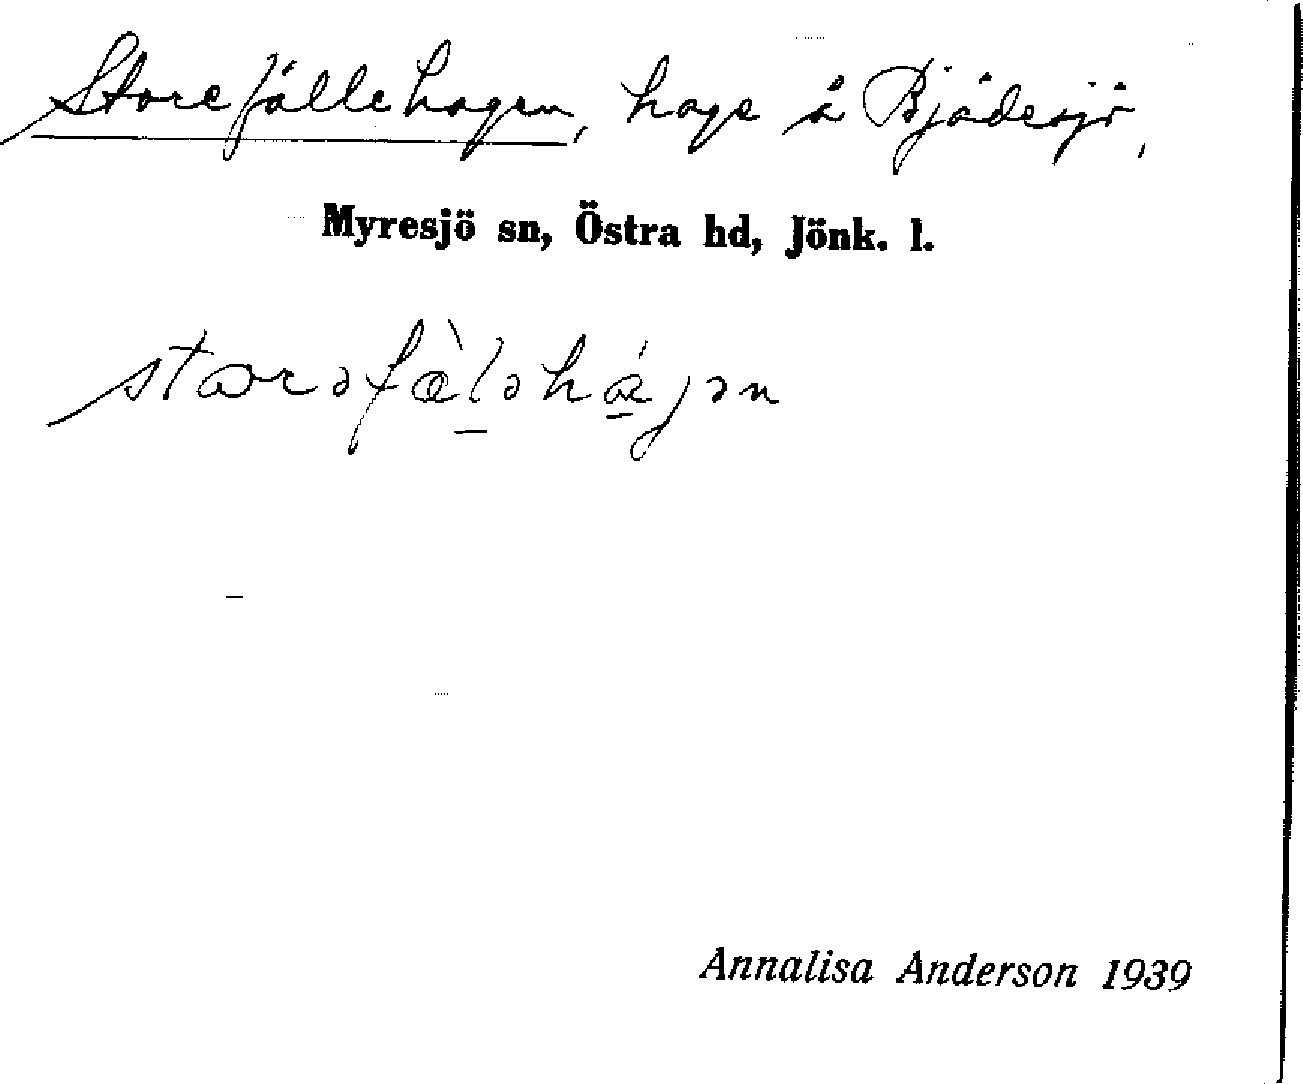 Storefållehagen, hage å Bjädesjö,
Myresjö sn, Östra hd, Jönk. l.
Annalisa Anderson 1939